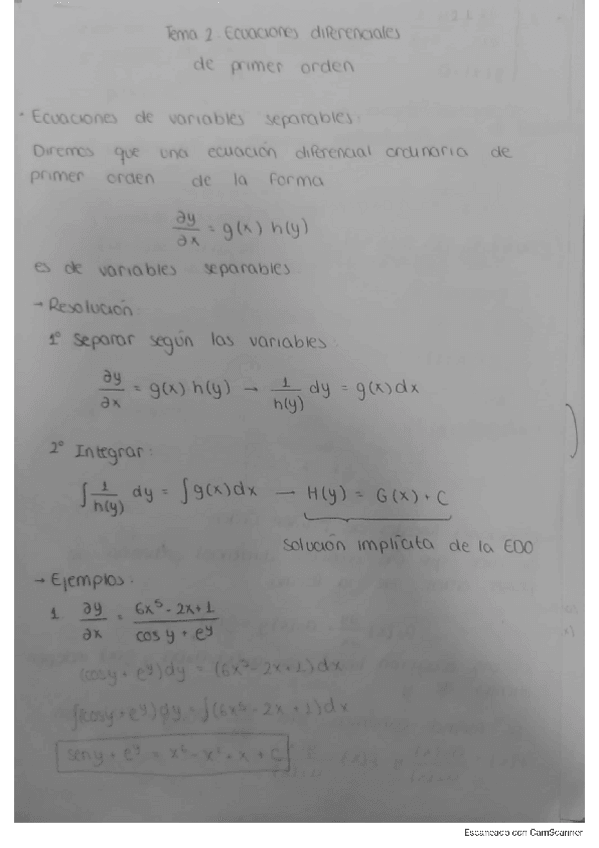 Tema 2. Ecuaciones diferenciales
de primer orden
· Ecuaciones de variables separables:
Diremos que una ecuación diferencial ordinaria de
primer orden de la forma
∂y/∂x = g(x) h(y)
es de variables separables
→ Resolución:
1º Separar según las variables:
∂y/∂x = g(x) h(y) → 1/h(y) dy = g(x)dx
2º Integrar:
∫ 1/h(y) dy = ∫ g(x)dx → H(y) = G(x) + C
solución implícita de la EDO
→ Ejemplos:
1. ∂y/∂x = 6x⁵ - 2x + 1 / cos y + eʸ
(cosy + eʸ)dy = (6x⁵ - 2x + 1)dx
∫(cosy + eʸ)dy = ∫(6x⁵ - 2x + 1)dx
seny + eʸ = x⁶ - x² + x + C
Escaneado con CamScanner